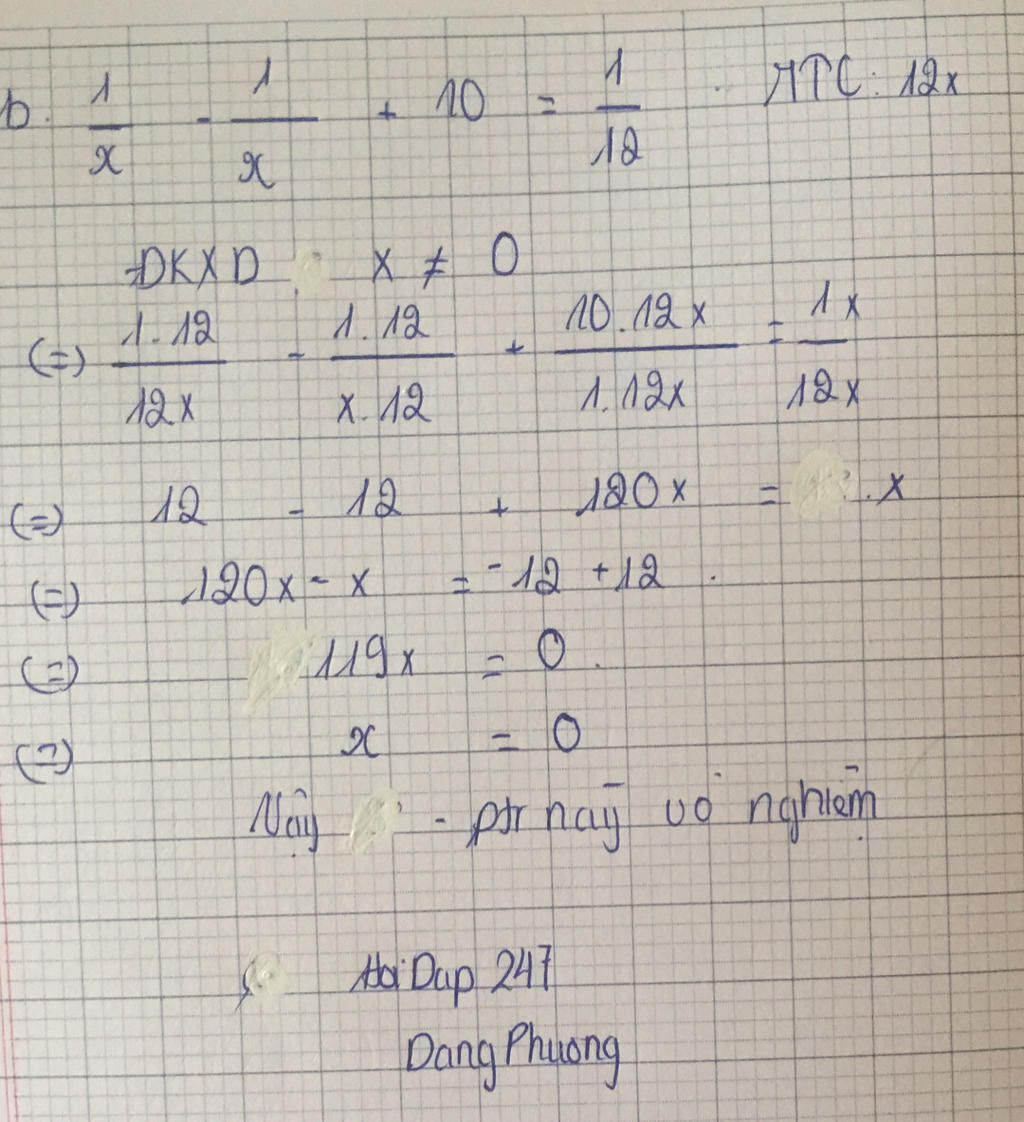 b. 1/x - 1/x + 10 = 1/12 . MTC: 12x
ĐKXD x ≠ 0
(=) 1.12/12x - 1.12/x.12 + 10.12x/1.12x = 1x/12x
(=) 12 - 12 + 120x = .x
(=) 120x - x = -12 + 12 .
(=) 119x = 0 .
(=) x = 0
Vậy - ptr này vô nghiệm
Hoi Dap 247
Dang Phuong